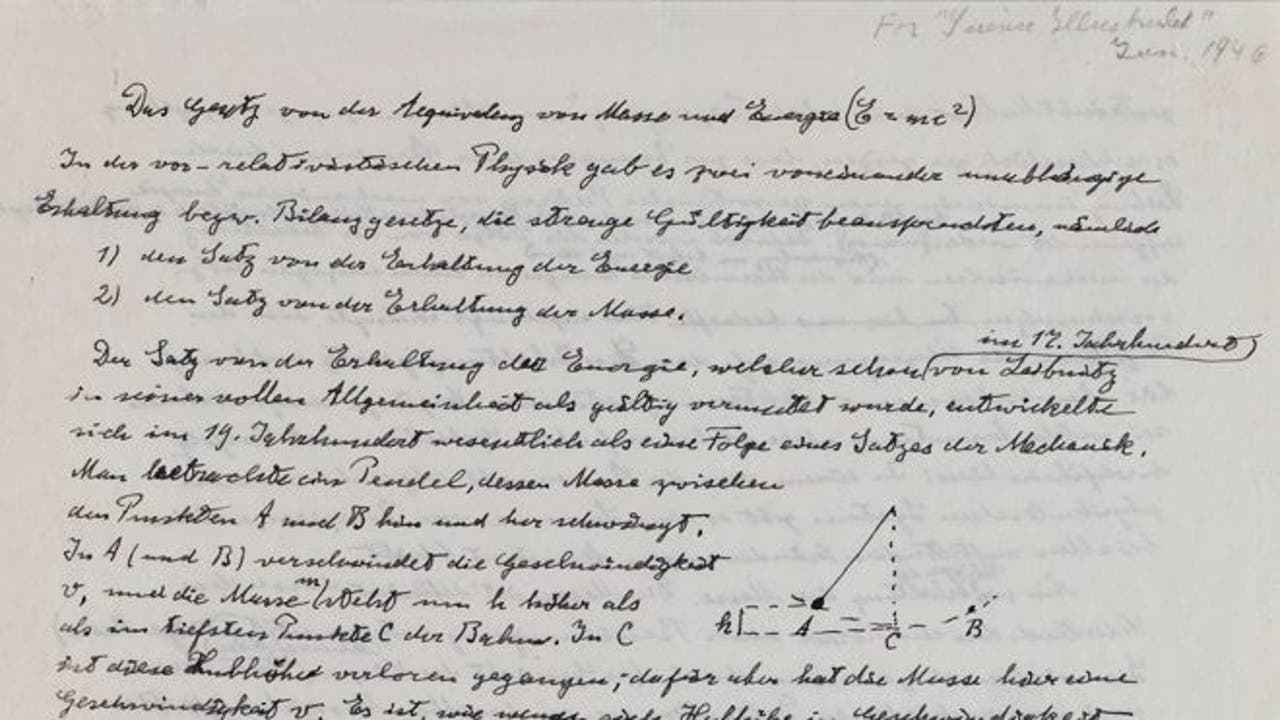 For "Science Illustrated"
Jan. 1946
Das Gesetz von der Aequivalenz von Masse und Energie (E = mc²)
In der vor-relativistischen Physik gab es zwei voneinander unabhängige
Erhaltung bezw. Bilanzgesetze, die strenge Gültigkeit beanspruchten, nämlich
1) den Satz von der Erhaltung der Energie
2) den Satz von der Erhaltung der Masse.
im 17. Jahrhundert
Der Satz von der Erhaltung der Energie, welcher schon von Leibnitz
in seiner vollen Allgemeinheit als gültig vermutet wurde, entwickelte
sich im 19. Jahrhundert wesentlich als eine Folge eines Satzes der Mechanik.
Man betrachte ein Pendel, dessen Masse zwischen
den Punkten A und B hin und her schwingt.
In A (und B) verschwindet die Geschwindigkeit
v, und die Masse m steht um h höher als
als im tiefsten Punkte C der Bahn. In C
ist diese Hubhöhe verloren gegangen; dafür aber hat die Masse hier eine
Geschwindigkeit v. Es ist, wie wenn sich Hubhöhe in Geschwindigkeit
h A C B